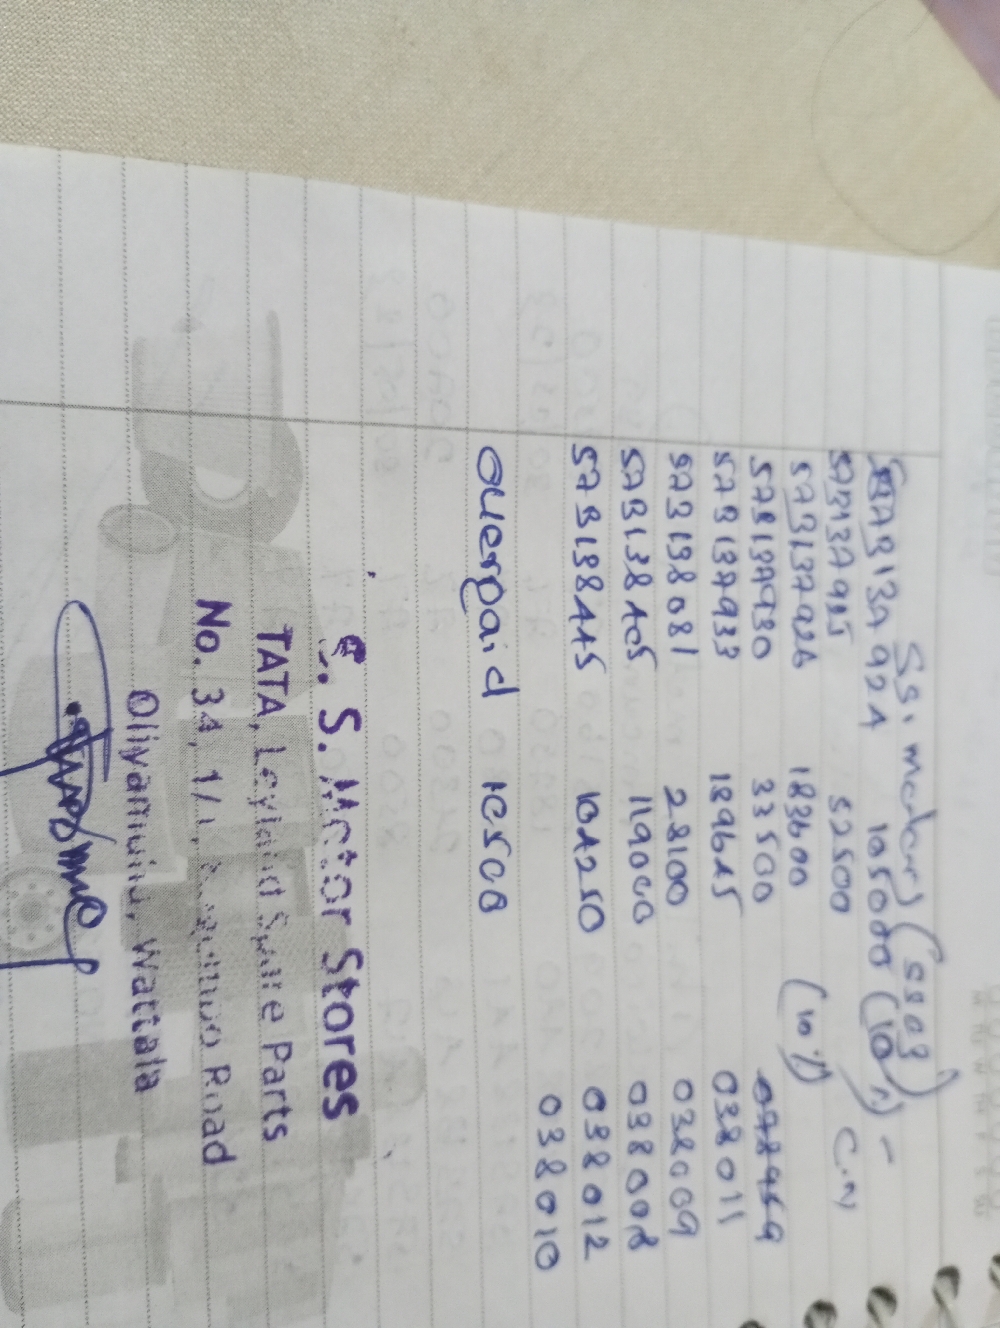 S.S. motors (5803)
5AB137924 105000 (10%) –
5AB137925 52500 C.N
5AB137926 183600 (10%)
5AB137930 33500
5AB137933 189645 038011
5AB138081 28100 038009
5AB138405 119000 038008
5AB138445 104250 038012
038010
overpaid 10500
S. S. Motor Stores
TATA, Leyland Spare Parts
No. 34, 1/1, Negombo Road
Oliyamulla, Wattala